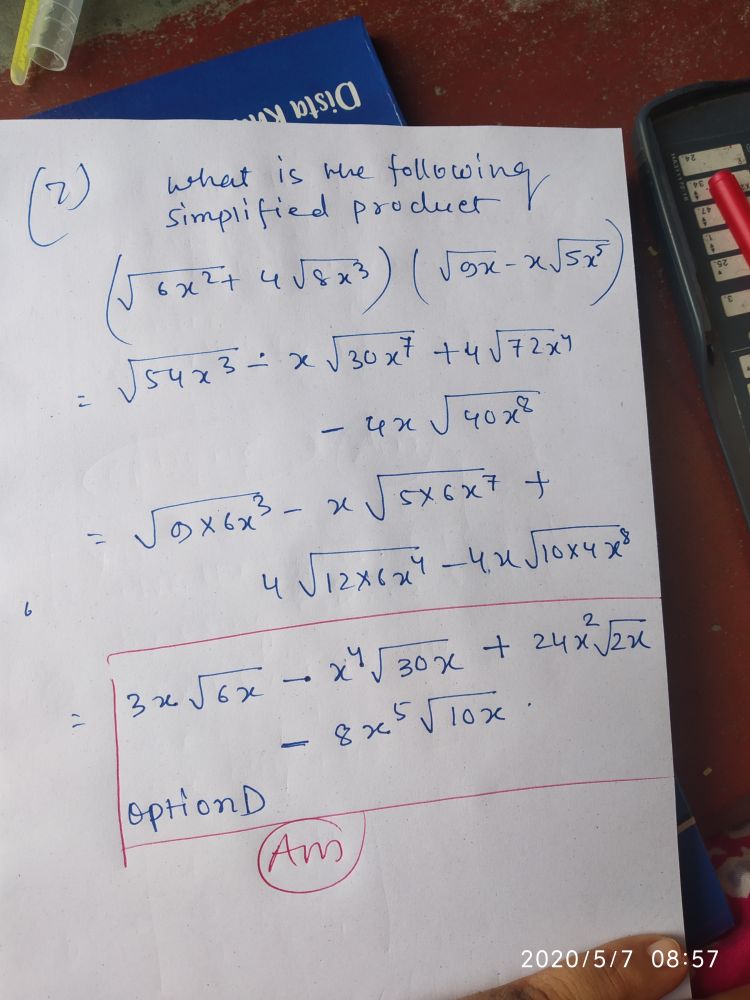 Dista
(2) what is the following
simplified product
(√6x²+ 4√8x³) (√9x - x√5x⁵)
= √54x³ - x√30x⁷ + 4√72x⁴
- 4x√40x⁸
= √9×6x³ - x√5×6x⁷ +
4√12×6x⁴ - 4x√10×4x⁸
= 3x√6x - x⁴√30x + 24x²√2x
- 8x⁵√10x.
option D
Ans
2020/5/7 08:57